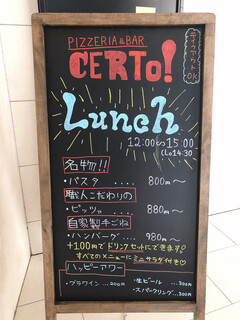 PIZZERIA & BAR
CERTO!
テイクアウトOK
Lunch
12:00〜15:00
(Lo14:30
名物!!
・パスタ .... 800円〜
職人こだわりの
・ピッツァ .... 880円〜
自家製手ごね
・ハンバーグ .... 980円〜
+100円でドリンクセットにできます
すべてのメニューにミニサラダ付き♡
ハッピーアワー
・グラスワイン ...300円 ・生ビール ...300円
・スパークリング...300円